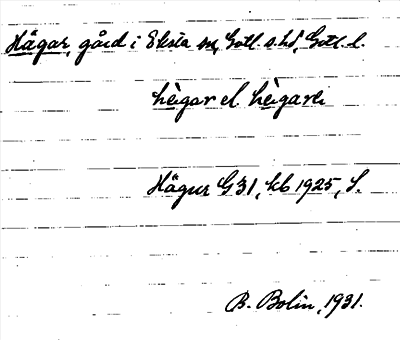 Hägar, gård i Eksta sn, Gotl. s. hd, Gotl. l.
hègar el. hègarɩ
Hägur G 31, kb 1925, S.
B. Bolin, 1931.